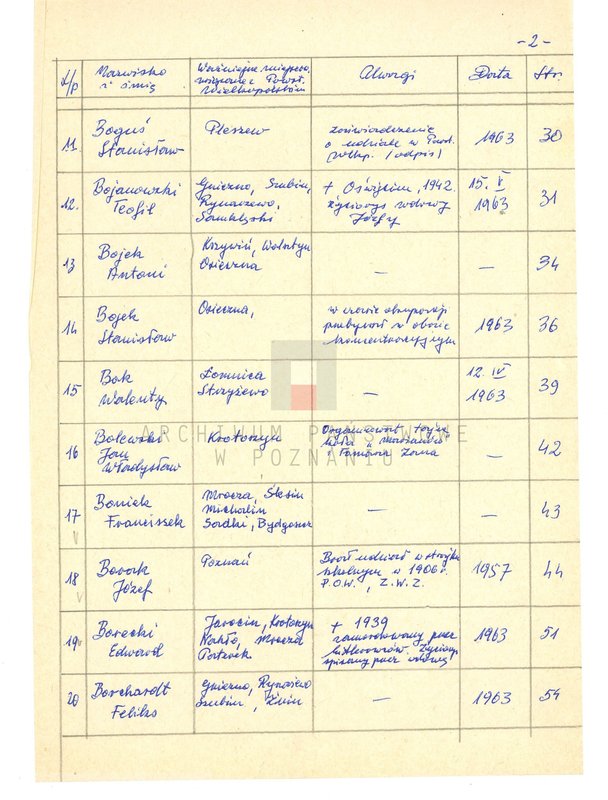 -2-
L/p
Nazwisko
i imię
Ważniejsze miejsco.
związane z Powst.
Wielkopolskim
Uwagi
Data
Str.
11.
Boguś
Stanisław
Pleszew
zaświadczenie
o udziale w Powst.
wlkp. (odpis)
1963
30
12.
Bojanowski
Teofil
Gniezno, Szubin,
Rynarzewo,
+ Oświęcim, 1942.
życiorys wdowy
Józefy
15. V
1963
31
13
Bojek
Antoni
Krzywiń,
Osieczna
—
—
34
14
Bojek
Stanisław
Osieczna,
w czasie okupacji
przebywał w obozie
koncentracyjnym
1963
36
15
Bok
Walenty
Łomnica
Strzyżewo
—
12. IV
1963
39
16
Bolewski
Jan
Władysław
Krotoszyn
Organizował tajne
koła
i Tomasza Zana
—
42
17
Boniek
Franciszek
Mrocza, Ślesin
Michalin
Sadki, Bydgoszcz
—
—
43
18
Borak
Józef
Poznań
Brał udział w strajku
szkolnym w 1906 r.
P.O.W., Z.W.Z.
1957
44
19
Borecki
Edward
Jarocin, Krotoszyn
Nakło, Mrocza
+ 1939
zamordowany przez
hitlerowców. Życiorys
spisany przez wdowę
1963
51
20
Borchardt
Feliks
Gniezno, Rynarzewo
Szubin, Żnin
—
1963
54
ARCHIWUM PAŃSTWOWE
W POZNANIU